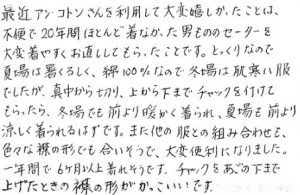 最近アン・コトンさんを利用して大変嬉しかったことは、
不便で20年間ほとんど着なかった男もののセーターを
大変着やすくお直ししてもらったことです。とっくりなので
夏場は暑くるしく、綿100%なので冬場は肌寒い服
でしたが、真中から切り、上から下までチャックを付けて
もらったら、冬場でも前より暖かく着られ、夏場も前より
涼しく着られるはずです。また他の服との組み合わせも、
色々な裸の形でも合いそうで、大変便利になりました。
一年間で6ヶ月以上着れそうです。チャックをあごの下まで
上げたときの裸の形がかっこいいです。